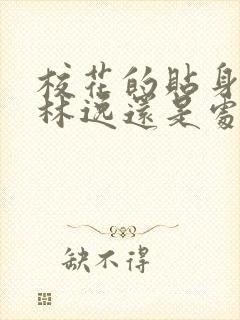 校花的贴身
林逸還是處
缺不得